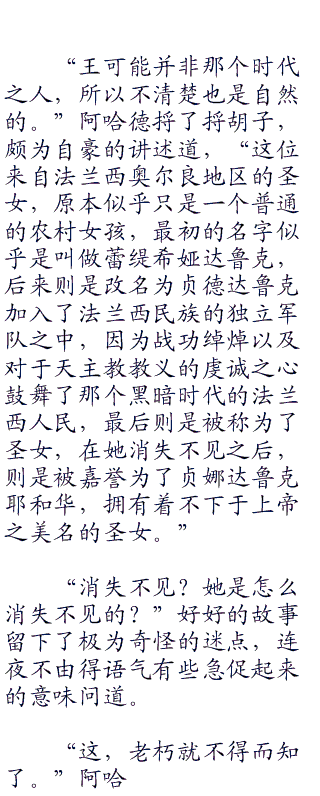 “王可能并非那个时代
之人，所以不清楚也是自然
的。”阿哈德捋了捋胡子，
颇为自豪的讲述道，“这位
来自法兰西奥尔良地区的圣
女，原本似乎只是一个普通
的农村女孩，最初的名字似
乎是叫做蕾缇希娅达鲁克，
后来则是改名为贞德达鲁克
加入了法兰西民族的独立军
队之中，因为战功绰焯以及
对于天主教教义的虔诚之心
鼓舞了那个黑暗时代的法兰
西人民，最后则是被称为了
圣女，在她消失不见之后，
则是被嘉誉为了贞娜达鲁克
耶和华，拥有着不下于上帝
之美名的圣女。”
“消失不见？她是怎么
消失不见的？”好好的故事
留下了极为奇怪的迷点，连
夜不由得语气有些急促起来
的意味问道。
“这，老朽就不得而知
了。”阿哈